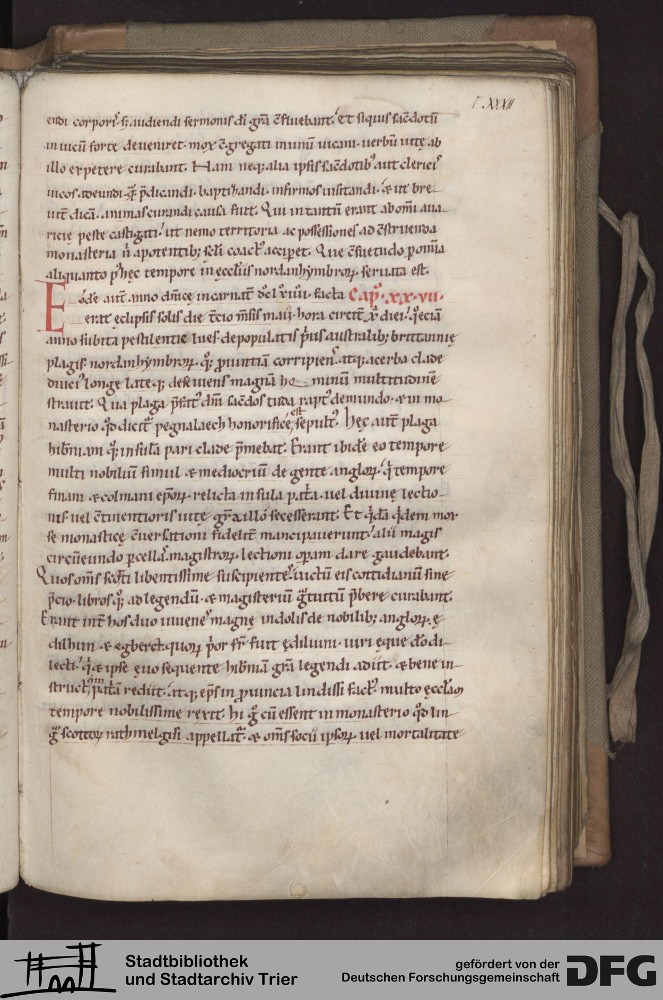 C XXXII
endi corporis, sed audiendi sermonis dei gra ẽfluebant. et siquis sacdotũ
in uicũ forte deueniret. mox ẽgregati in unũ uicani. uerbũ uite ab
illo expetere curabant. Nam neq; alia ipsis sacdotib; aut clericis
uicos adeundi. q̃ p̃dicandi. baptizandi. infirmos uisitandi. & ut bre
uit dicã. animas curandi causa fuit. Qui in tantũ erant ab omi aua
ricie peste castigati. ut nemo territoria ac possessiones ad ẽstruenda
monasteria ñ a potentib; scli coact accipet. Que ẽsuetudo p omia
aliquanto p hec tempore in ecclis nordanhymbrorꝝ seruata est.
Eode aut anno dñice incarnat dclxiiii. facta Cap. xx.vii.
erat eclipsis solis die tcio msis maii. hora circit x diei. q̃ ecia
anno subita pestilentie lues. depopulatis pus australib; brittannie
plagis. nordanhymbrorꝝ q; puintiã corripiens. atq; acerba clade
diuci longe lateq; deseuiens magnã ho minũ multitudinẽ
strauit. Qua plaga pfat dñi sacdos tuda rapt de mundo. & in mo
nasterio qd dicit pegnalaech honorifice est sepult. Hec aut plaga
hibniam q; insulã pari clade pmebat. Erant ibide eo tempore
multi nobiliũ simul & mediocriũ de gente anglorꝝ. q̃ tempore
finani & colmani eporꝝ. relicta insula patia. uel diuine lectio
nis. uel ẽtinentioris uite gra illo secesserant. Et qdã qdem mox
se monastice ẽuersationi fidelit mancipauerunt. alii magis
circueundo p cellas magistrorꝝ lectioni opam dare gaudebant.
Quos oms scotti libentissime suscipientes. uictũ eis cottidianũ sine
pcio. libros q; ad legendũ. & magisteriũ gtuitũ pbere curabant.
Erant int hos duo iuuenes magne indolis de nobilib; anglorꝝ. e
dilhun & egberct. quorꝝ por fr fuit ediluini. uiri eque do di
lecti. q̃ & ipse euo sequente hibniã gra legendi adiit. & bene in
struct patiã rediit. atq; eps in puincia lindissi fact. multo ecclam
tempore nobilissime rexit. hi g cũ essent in monasterio qd lin
g̃ scottorꝝ rathmelgisi appellat. & oms socii ipsorꝝ uel mortalitate
Stadtbibliothek
und Stadtarchiv Trier
gefördert von der
Deutschen Forschungsgemeinschaft
DFG